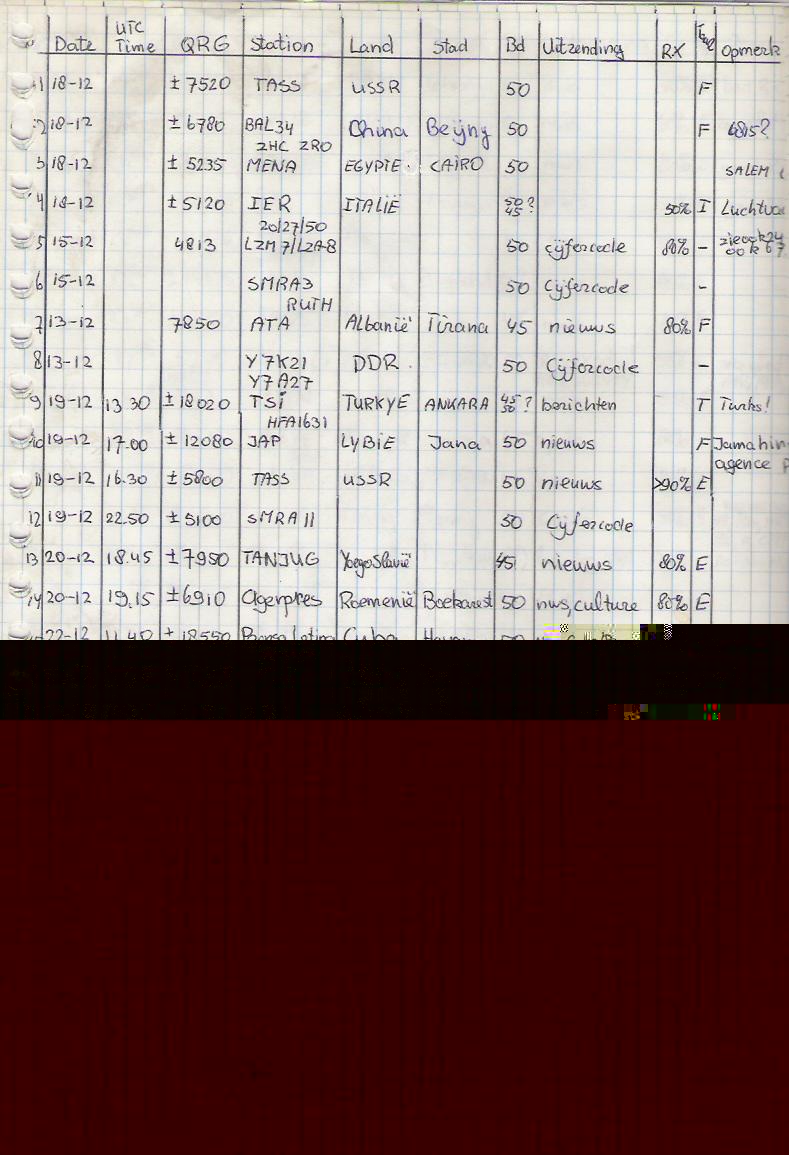 Date UTC Time QRG Station Land Stad Bd Uitzending RX Taal Opmerk
1 18-12 ± 7520 TASS USSR 50 F
2 18-12 ± 6780 BAL34 China Beijng 50 F 6815?
2HC 2RO
3 18-12 ± 5235 MENA EGYPTE. CAÏRO 50 SALEM
4 18-12 ± 5120 IER ITALIË 50? 45 50% I
20/27/50
5 15-12 4813 LZM7/LZA8 50 cijfercode 80% - zie ook 24
ook 67
6 15-12 SMRA3 50 Cijfercode -
RUTH
7 13-12 7850 ATA Albanië Tirana 45 nieuws 80% F
8 13-12 Y7K21 DDR. 50 Cijfercode -
Y7A27
9 19-12 13.30 ± 18020 TSI TURKYE ANKARA 45 50? berichten T Turks!
HFA1631
10 19-12 17.00 ± 12080 JAP LYBIË Jana 50 nieuws F
agence
11 19-12 16.30 ± 5800 TASS USSR 50 nieuws >90% E
12 19-12 22.50 ± 5100 SMRA11 50 Cijfercode
13 20-12 18.45 ± 7950 TANJUG Yoegoslavië 45 nieuws 80% E
14 20-12 19.15 ± 6910 Agerpres Roemenië Boekarest 50 nws,culture 80% E
22-12 11.40 ± 18550 Prensa Latina Cuba 50